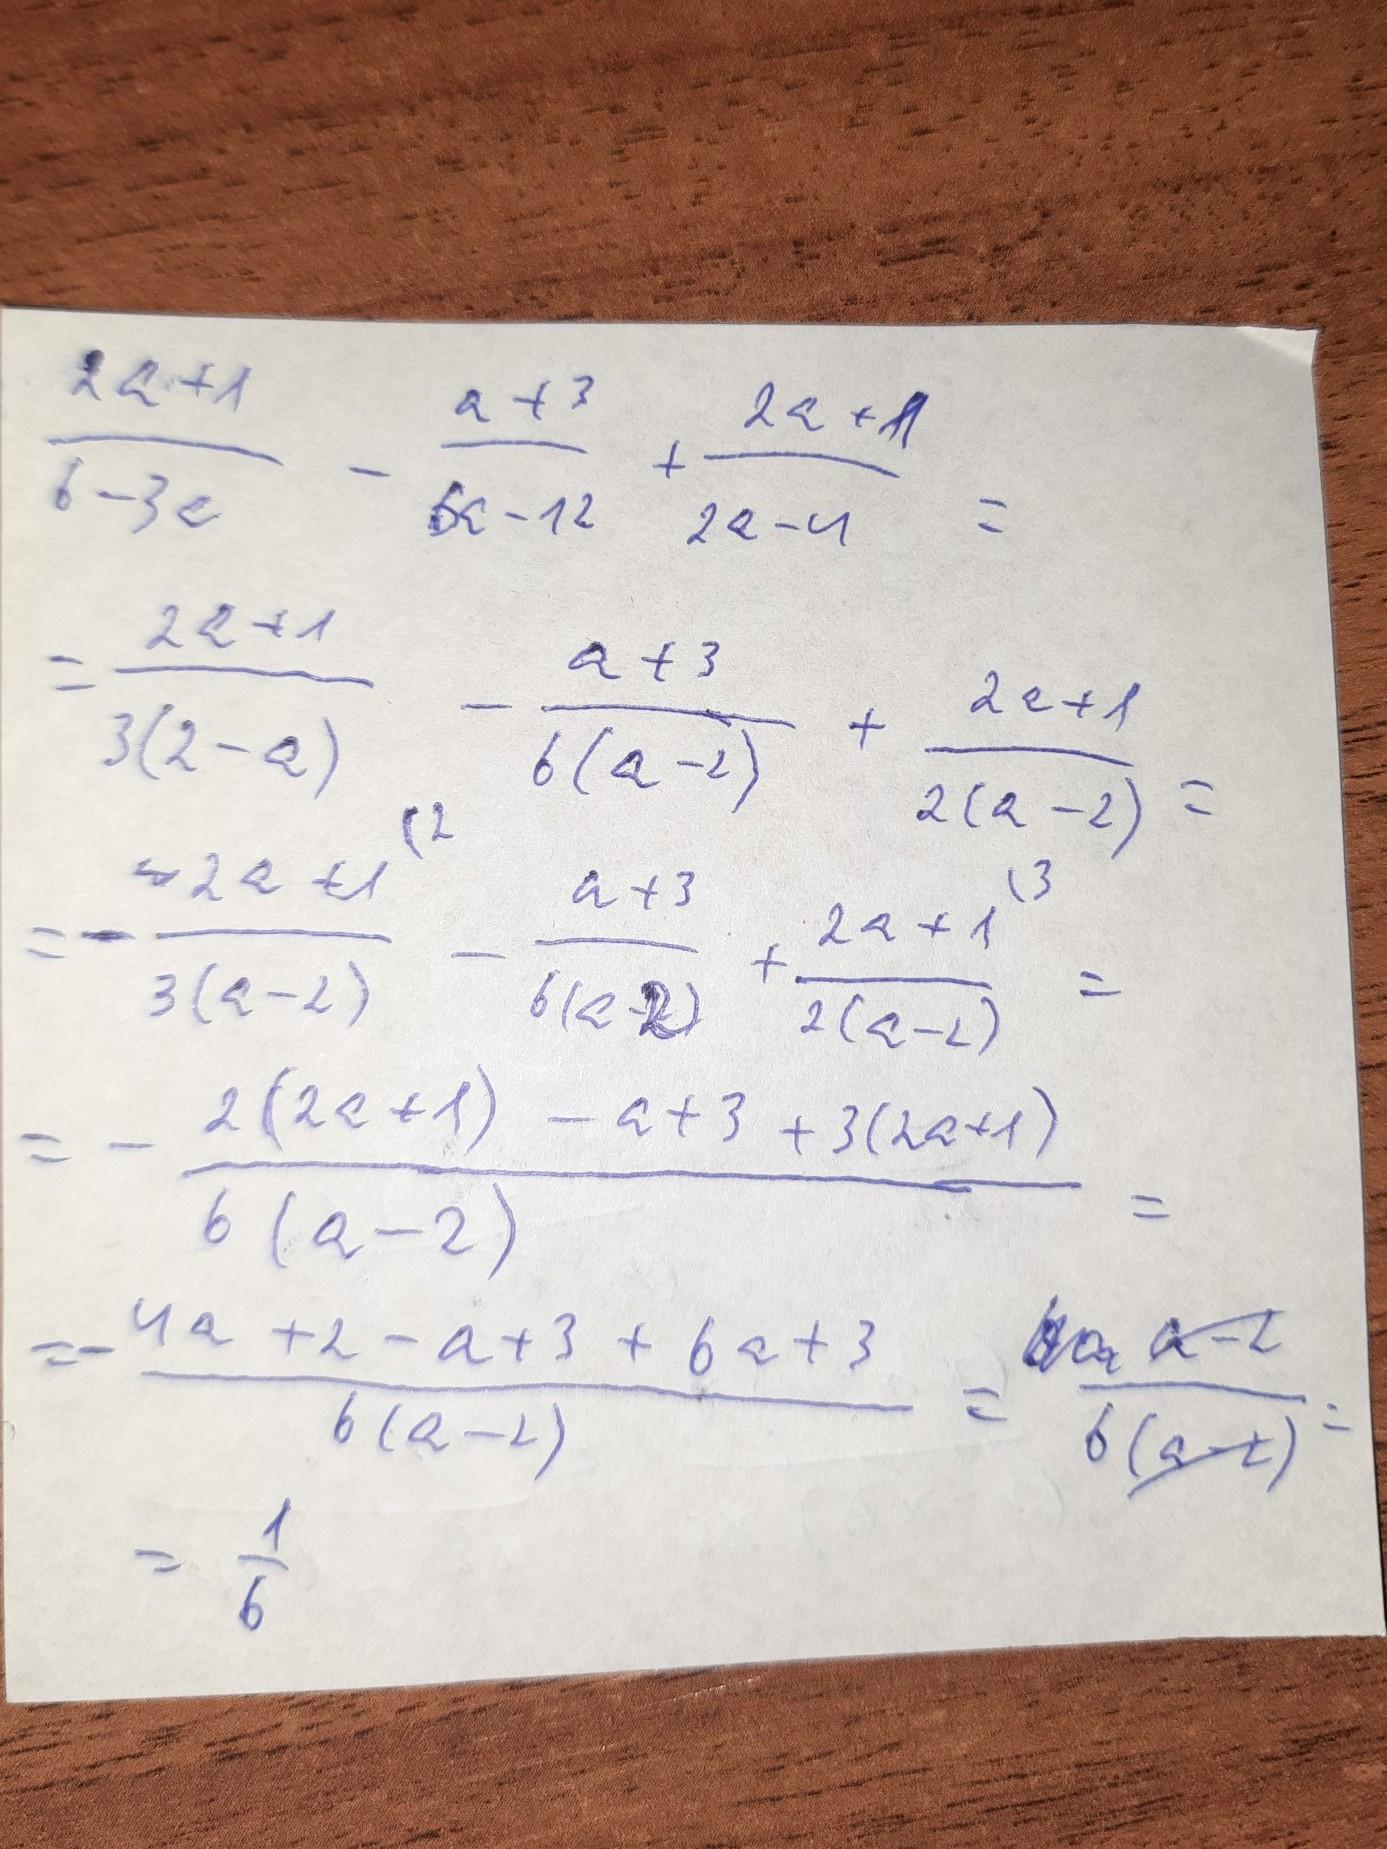 (2a+1)/(6-3a) - (a+3)/(6a-12) + (2a+1)/(2a-4) =
= (2a+1)/(3(2-a)) - (a+3)/(6(a-2)) + (2a+1)/(2(a-2)) =
= - (2a+1)/(3(a-2)) (2 - (a+3)/(6(a-2)) + (2a+1)/(2(a-2)) (3 =
= - (2(2a+1) - a+3 + 3(2a+1))/(6(a-2)) =
= - (4a+2-a+3+6a+3)/(6(a-2)) = (a-2)/(6(a-2)) =
= 1/6